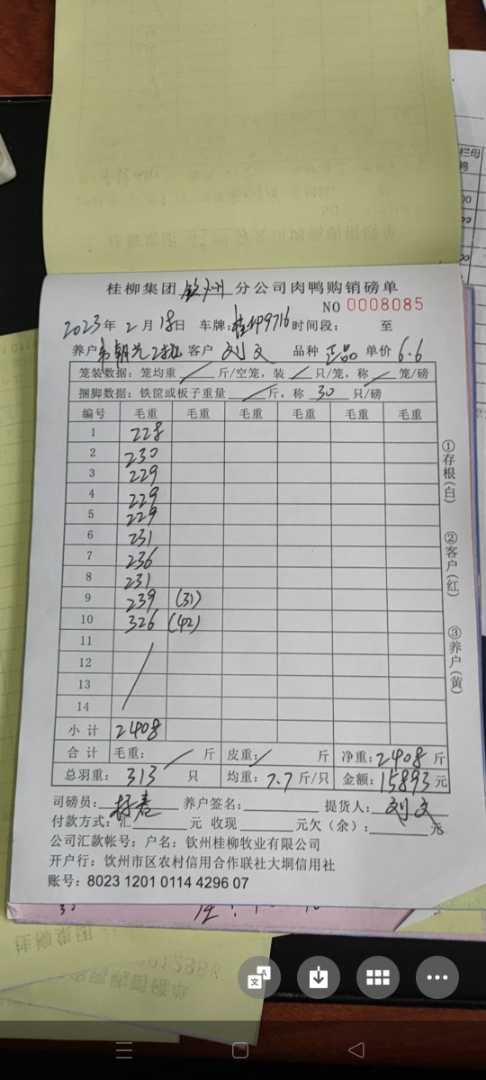 桂柳集团 钦州 分公司肉鸭购销磅单
NO 0008085
2023年2月18日 车牌:桂 49716 时间段: 至
养户 韦朝光2批 客户 刘文 品种 正品 单价 6.6
笼装数据:笼均重 / 斤/空笼,装 / 只/笼,称 / 笼/磅
捆脚数据:铁筐或板子重量 / 斤,称 30 只/磅
编号 毛重 毛重 毛重 毛重 毛重 毛重
1 228
2 230
3 229
4 229
5 229
6 231
7 236
8 231
9 239 (31)
10 326 (42)
11
12
13
14
小计 2408
合计 毛重: / 斤 皮重: / 斤 净重:2408斤
总羽重: 313 只 均重:7.7斤/只 金额:15893元
司磅员: 养户签名: 提货人:刘文
付款方式:汇 元 收现 元欠(余): 元
公司汇款帐号:户名:钦州桂柳牧业有限公司
开户行:钦州市区农村信用合作联社大垌信用社
账号:8023 1201 0114 4296 07
①存根(白)
②客户(红)
③养户(黄)